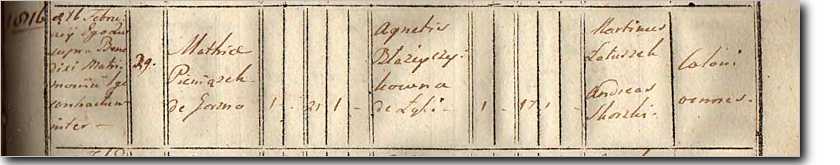 1816
d 26 Febru
arij Ego qui
supra Bene
dixi Matri
monium
contractum
inter
29.
Mathiæ
Pieniązek
de Gorno
1 - 21 1 -
Agnetis
Błażeyczy
kowna
de Łyki
1 - 17 1 -
Martinus
Łatuszek
Andreas
Skorski.
Coloni
omnes.